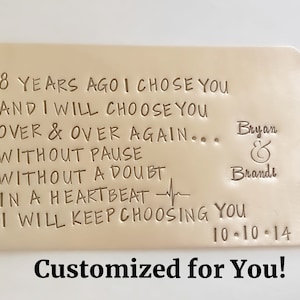 8 YEARS AGO I CHOSE YOU
AND I WILL CHOOSE YOU
OVER & OVER AGAIN...
WITHOUT PAUSE
WITHOUT A DOUBT
IN A HEARTBEAT
I WILL KEEP CHOOSING YOU
Bryan
&
Brandi
10•10•14
Customized for You!